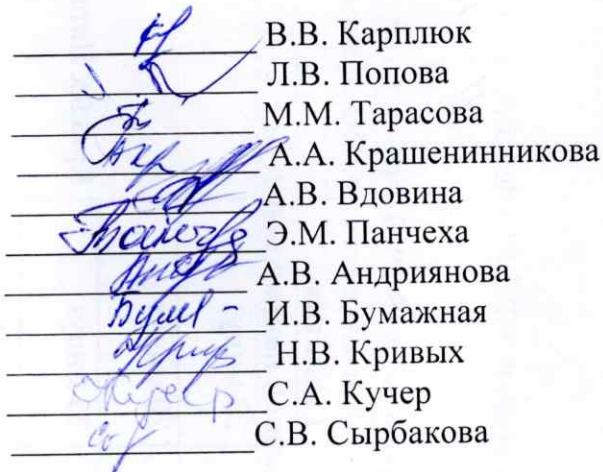 В.В. Карплюк
Л.В. Попова
М.М. Тарасова
А.А. Крашенинникова
А.В. Вдовина
Э.М. Панчеха
А.В. Андриянова
И.В. Бумажная
Н.В. Кривых
С.А. Кучер
С.В. Сырбакова